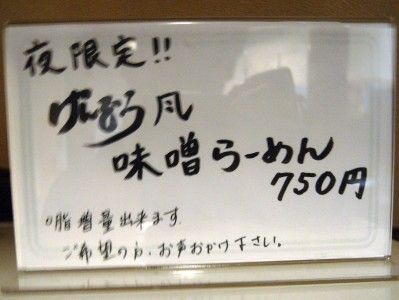 夜限定!!
げんこつ風
味噌らーめん
750円
○脂増量出来ます.
ご希望の方、お声おかけ下さい。